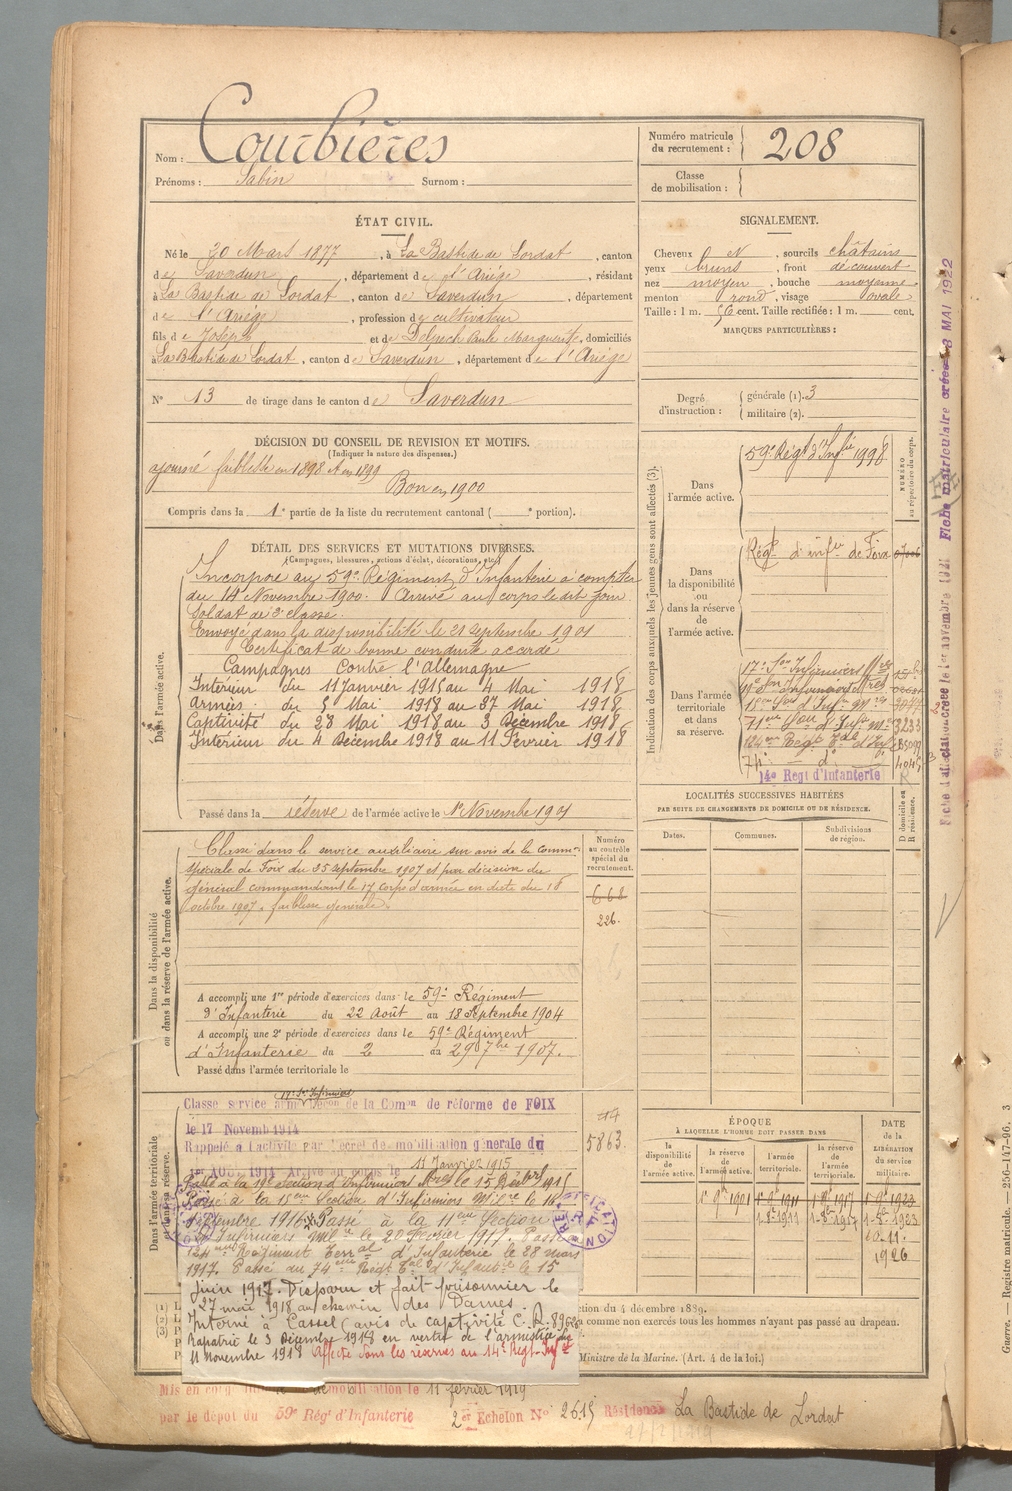 Nom : Courbières
Prénoms : Sabin Surnom :
Numéro matricule du recrutement : 208
Classe de mobilisation :
ÉTAT CIVIL.
Né le 20 Mars 1877, à La Bastide de Lordat, canton
de Saverdun, département de l'Ariège, résidant
à La Bastide de Lordat, canton de Saverdun, département
de l'Ariège, profession de cultivateur
fils de Joseph et de Delpech Paule Marguerite, domiciliés
à La Bastide de Lordat, canton de Saverdun, département de l'Ariège
N° 13 de tirage dans le canton de Saverdun
SIGNALEMENT.
Cheveux N, sourcils châtains
yeux bruns, front découvert
nez moyen, bouche moyenne
menton rond, visage ovale
Taille : 1 m. 56 cent. Taille rectifiée : 1 m. cent.
MARQUES PARTICULIÈRES :
Degré d'instruction : générale (1). 3
militaire (2).
DÉCISION DU CONSEIL DE REVISION ET MOTIFS.
(Indiquer la nature des dispenses.)
ajourné faiblesse en 1898 et en 1899
Bon en 1900
Compris dans la 1e partie de la liste du recrutement cantonal ( e portion).
DÉTAIL DES SERVICES ET MUTATIONS DIVERSES.
(Campagnes, blessures, actions d'éclat, décorations, etc.)
Dans l'armée active.
Incorporé au 59e Régiment d'Infanterie à compter
du 14 Novembre 1900. Arrivé au corps le dit jour
Soldat de 2e classe.
Envoyé dans la disponibilité le 21 septembre 1901
Certificat de bonne conduite accordé
Campagnes contre l'Allemagne
Intérieur du 11 Janvier 1915 au 4 Mai 1918
Armées du 5 Mai 1918 au 27 Mai 1918
Captivité du 28 Mai 1918 au 3 Décembre 1918
Intérieur du 4 Décembre 1918 au 11 Février 1918
Passé dans la réserve de l'armée active le 1er Novembre 1901
Indication des corps auxquels les jeunes gens sont affectés (3).
NUMÉRO au répertoire du corps.
Dans l'armée active.
59e Régt d'Infie 1998
Dans la disponibilité ou dans la réserve de l'armée active.
Régt d'infie de Foix
Dans l'armée territoriale et dans sa réserve.
17e Son Infirmiers
3233
74e do 404
14e Regt d'Infanterie
LOCALITÉS SUCCESSIVES HABITÉES
PAR SUITE DE CHANGEMENTS DE DOMICILE OU DE RÉSIDENCE.
Dates. Communes. Subdivisions de région. D domicile ou R résidence.
Dans la disponibilité ou dans la réserve de l'armée active.
Classé dans le service auxiliaire sur avis de la Comm.on
spéciale de Foix du 25 septembre 1907 et par décision du
général commandant le 17 corps d'armée en date du 18
octobre 1907. faiblesse générale.
Numéro au contrôle spécial du recrutement.
668
226.
A accompli une 1re période d'exercices dans le 59e Régiment
d'Infanterie du 22 Août au 18 Septembre 1904
A accompli une 2e période d'exercices dans le 59e Régiment
d'Infanterie du 2 au 29 7bre 1907.
Passé dans l'armée territoriale le
Dans l'armée territoriale et dans sa réserve.
Classe service armé Décon de la Comon de réforme de FOIX
le 17 Novemb 1914
Rappelé à l'activité par décret de mobilisation générale du
1er Août 1914 Arrivé au corps le 11 Janvier 1915
5863.
Passé à la 15eme Section d'Infirmiers Milre le 16
Septembre 1916. Passé à la 11eme Section
d'Infirmiers Milre le 20 Février 1917. Passé
124eme Régiment Terral d'Infanterie le 28 mars
1917. Passé au 74eme Régt Tal d'Infanterie le 15
Juin 1917. Disparu et fait prisonnier le
27 mai 1918 au chemin des Dames.
Interné à Cassel (avis de captivité C.R.
Rapatrié le 3 Décembre 1918 en vertu de l'armistice du
11 Novembre 1918 Affecté dans les réserves au 14e Régt Inf
ÉPOQUE
À LAQUELLE L'HOMME DOIT PASSER DANS
la disponibilité de l'armée active. la réserve de l'armée active. l'armée territoriale. la réserve de l'armée territoriale. DATE de la LIBÉRATION du service militaire.
1er 9bre 1901 1er 9bre 1911 1er 9bre 1917 1er 9bre 1923
10.11.
1926
ction du 4 décembre 1889.
comme non exercés tous les hommes n'ayant pas passé au drapeau.
Ministre de la Marine. (Art. 4 de la loi.)
Mis en congé de démobilisation le 11 février 1919
par le dépôt du 59e Régt d'Infanterie 2er Echelon No 2615 Résidence La Bastide de Lordat
Fiche d'affectation créée le 1er novembre 1921 Fiche matriculaire créée 8 MAI 1922
Guerre. — Registre matricule. — 256-147-96. 3